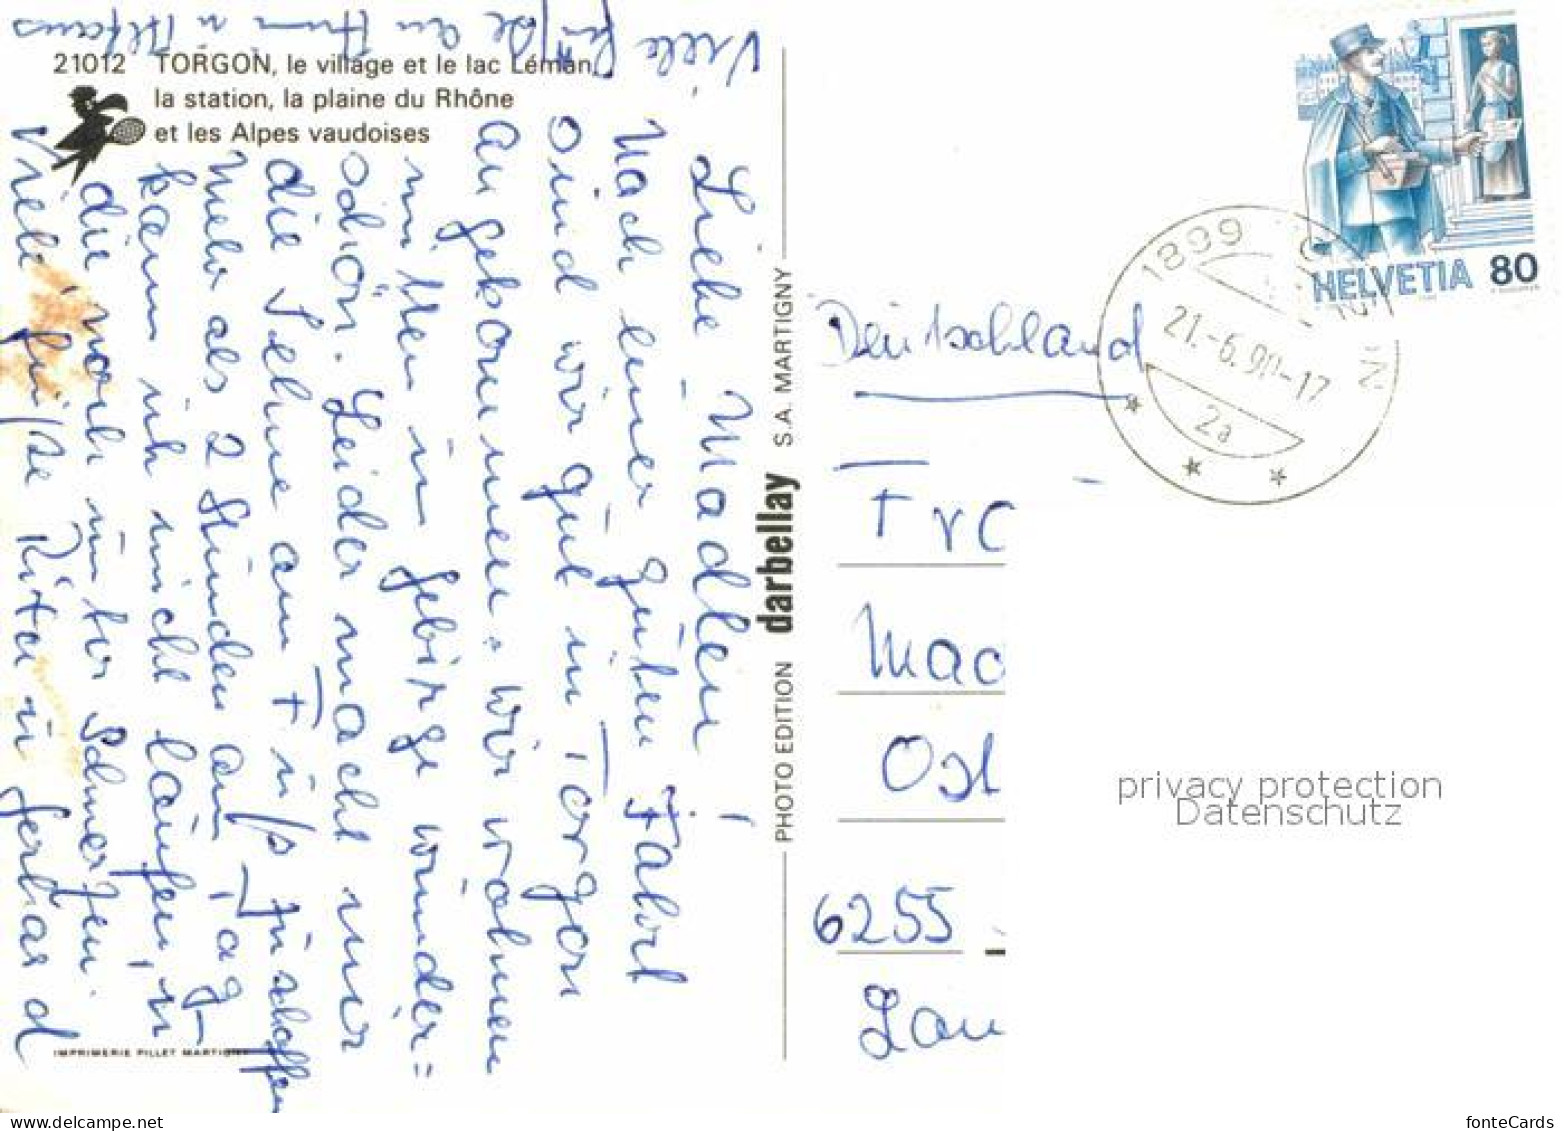 21012 TORGON, le village et le lac Léman,
la station, la plaine du Rhône
et les Alpes vaudoises
Liebe Madlen!
Nach einer guten Fahrt
sind wir gut in Torgon
angekommen. Wir wohnen
mitten im Gebirge wunder=
schön. Leider macht mir
die Sehne am Fuß zu schaffen
mehr als 2 Stunden am Tag
kann ich nicht laufen, u
die noch unter Schmerzen.
Viele Grüße Rita u Gerhard
Viele Grüße an u
PHOTO EDITION darbellay S.A. MARTIGNY
IMPRIMERIE PILLET MARTIGNY
HELVETIA 80
1899
21.-6.90-17
2a
Deutschland
Mad
Ost
6255
privacy protection
Datenschutz
fonteCards